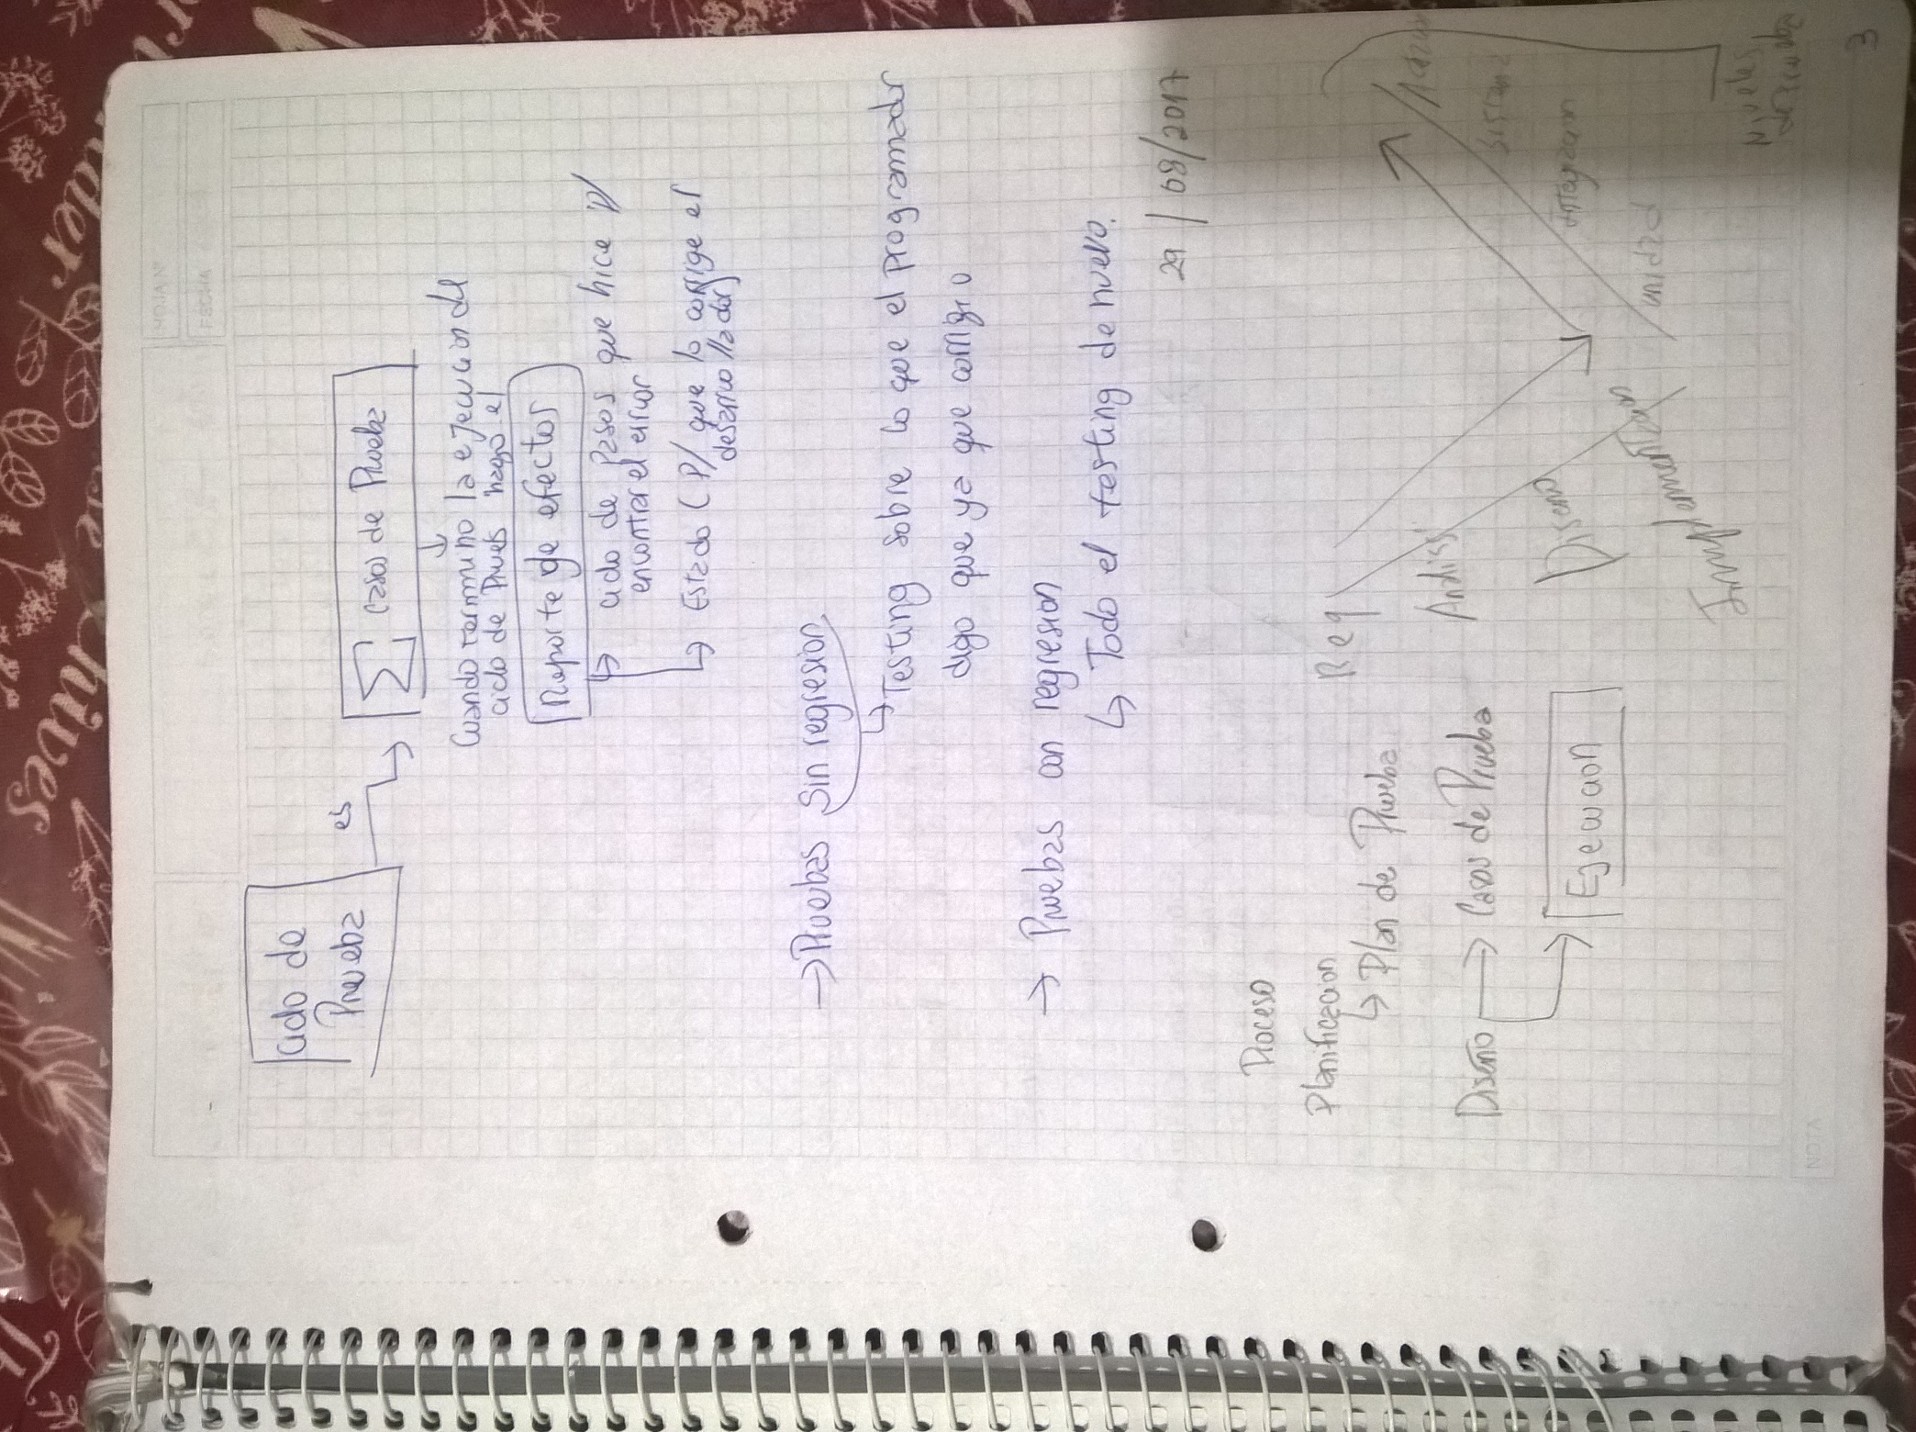 HOJA Nº
FECHA
ciclo de
Prueba
es
∑ casos de Prueba
Cuando termino la ejecucion del
ciclo de Prueb hago el
Reporte de efectos
ciclo de pasos que hice p/
encontrar el error
Estado (P/ que lo corrige el
desarrollador)
→ Pruebas sin regresion
Testing sobre lo que el programador
digo que ya que corrigio
→ Pruebas con regresion
Todo el testing de nuevo.
29 / 08/2017
Proceso
Planificacion
Plan de Prueba
Diseño → Casos de Prueba
Ejecucion
Req
Analisis
Diseño
Implementacion
unidad
Integracion
Sistema
Niveles
de Prueba
NOTA
3